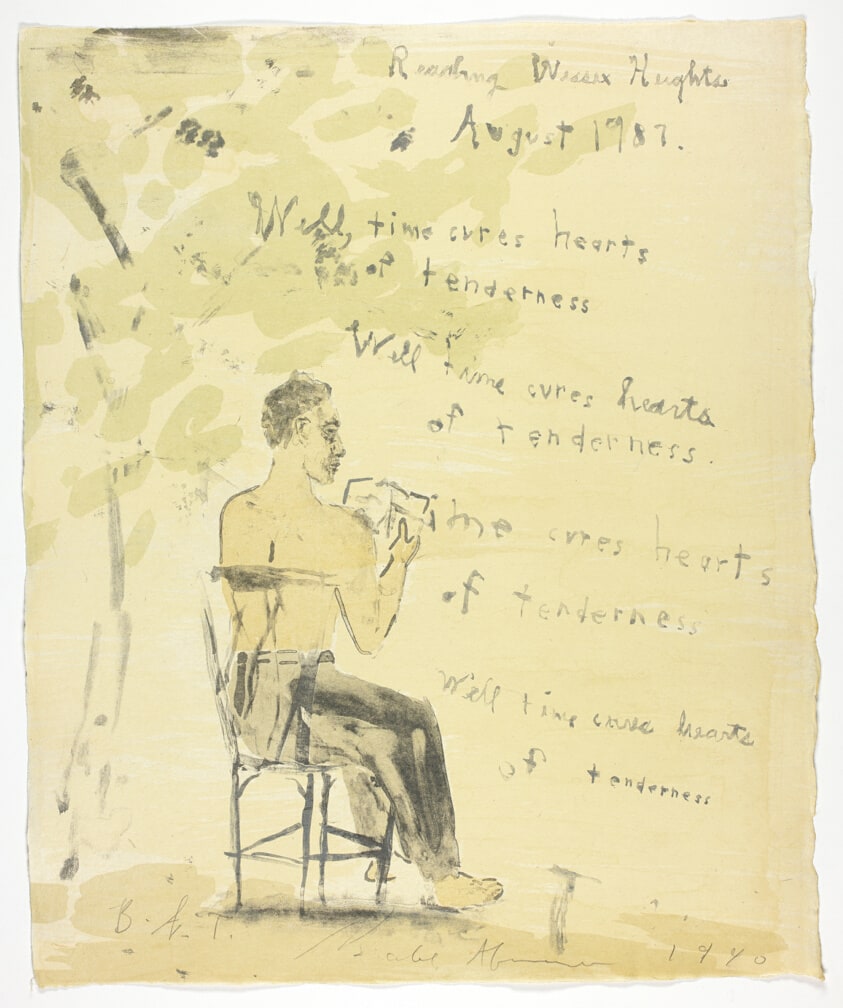 Reading Wessex Heights
August 1987.
Well, time cures hearts
of tenderness
Well time cures hearts
of tenderness.
Time cures hearts
of tenderness
Well time cures hearts
of tenderness
B.A.T.
1990